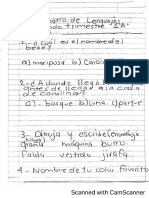 de Lenguajes
trimestre "1°A"
2- ¿Cuál es el nombre del
bebé?
a) mariposa b)
2- ¿A donde
antes de llegar a la casa
de carolina?
a) bosque b) luna
3- Dibuja y escribe
grana maquina buro
Falda vestido jirafa
4- Nombre de tu color favorito
Scanned with CamScanner